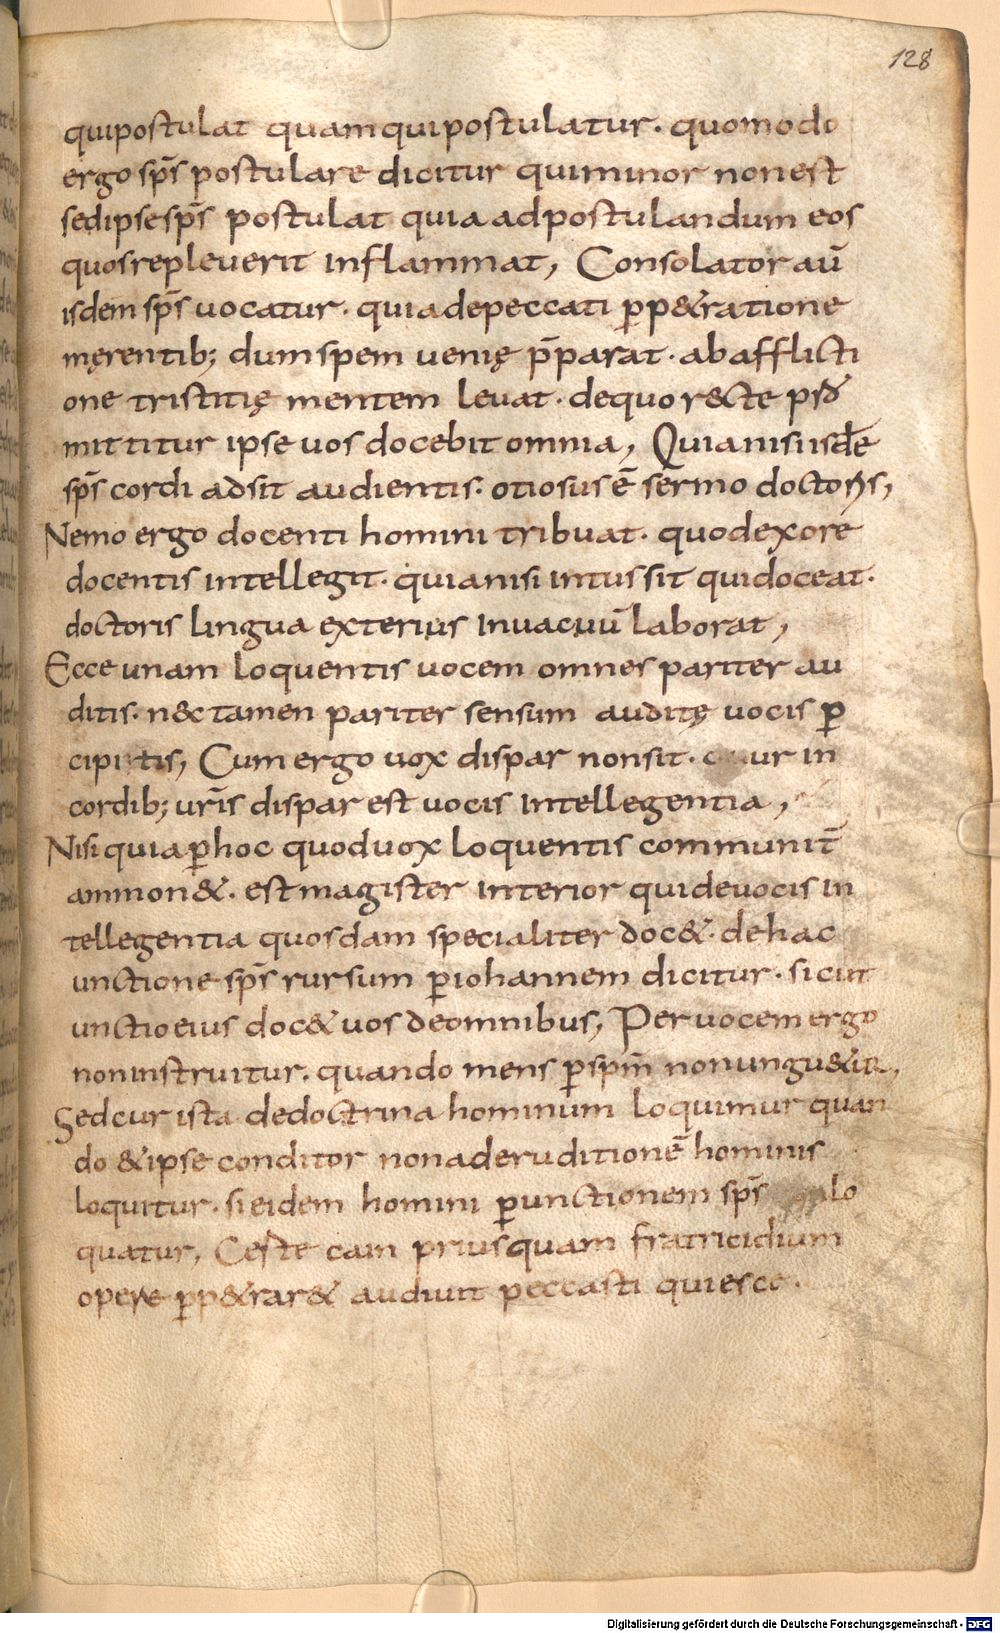 128
quipostulat quamquipostulatur. quomodo
ergo sps̄ postulare dicitur quiminor nonest
sedipsesps̄ postulat quia adpostulandum eos
quosrepleuerit inflammat, Consolator aū
isdem sps̄ uocatur. quiadepeccati ꝑp&ratione
męrentib; dumspem uenię p̄parat. abafflicti
one tristitię mentem leuat. dequo r&cte
mittitur ipse uos docebit omnia, Quianisiisdē
sps̄ cordi adsit audientis. otiosus ē sermo doctoris,
Nemo ergo docenti homini tribuat. quodexore
docentis intellegit. quianisi intus sit quidoceat.
doctoris lingua exterius inuacuū laborat,
Ecce unam loquentis uocem omnes pariter au
ditis. n&c tamen pariter sensum auditę uocis ꝑ
cipitis, Cum ergo uox dispar nonsit. cur in
cordib; ur̄is dispar est uocis intellegentia,
Nisi quia ꝑhoc quoduox loquentis communit̄
ammon&. est magister interior quideuocis in
tellegentia quosdam specialiter doc&. dehac
unctione sps̄ rursum ꝑiohannem dicitur. sicut
unctio eius doc& uos deomnibus, Per uocem ergo
noninstruitur. quando mens ꝑspm̄ nonungu&ur,
Sed cur ista dedoctrina hominum loquimur quan
do &ipse conditor nonaderuditionē hominis
loquitur. si eidem homini ꝑunctionem sps̄ lo
quatur, Certe cain priusquam fratricidium
opere ꝑp&rar& audiuit peccasti quiesce.
Digitalisierung gefördert durch die Deutsche Forschungsgemeinschaft - DFG